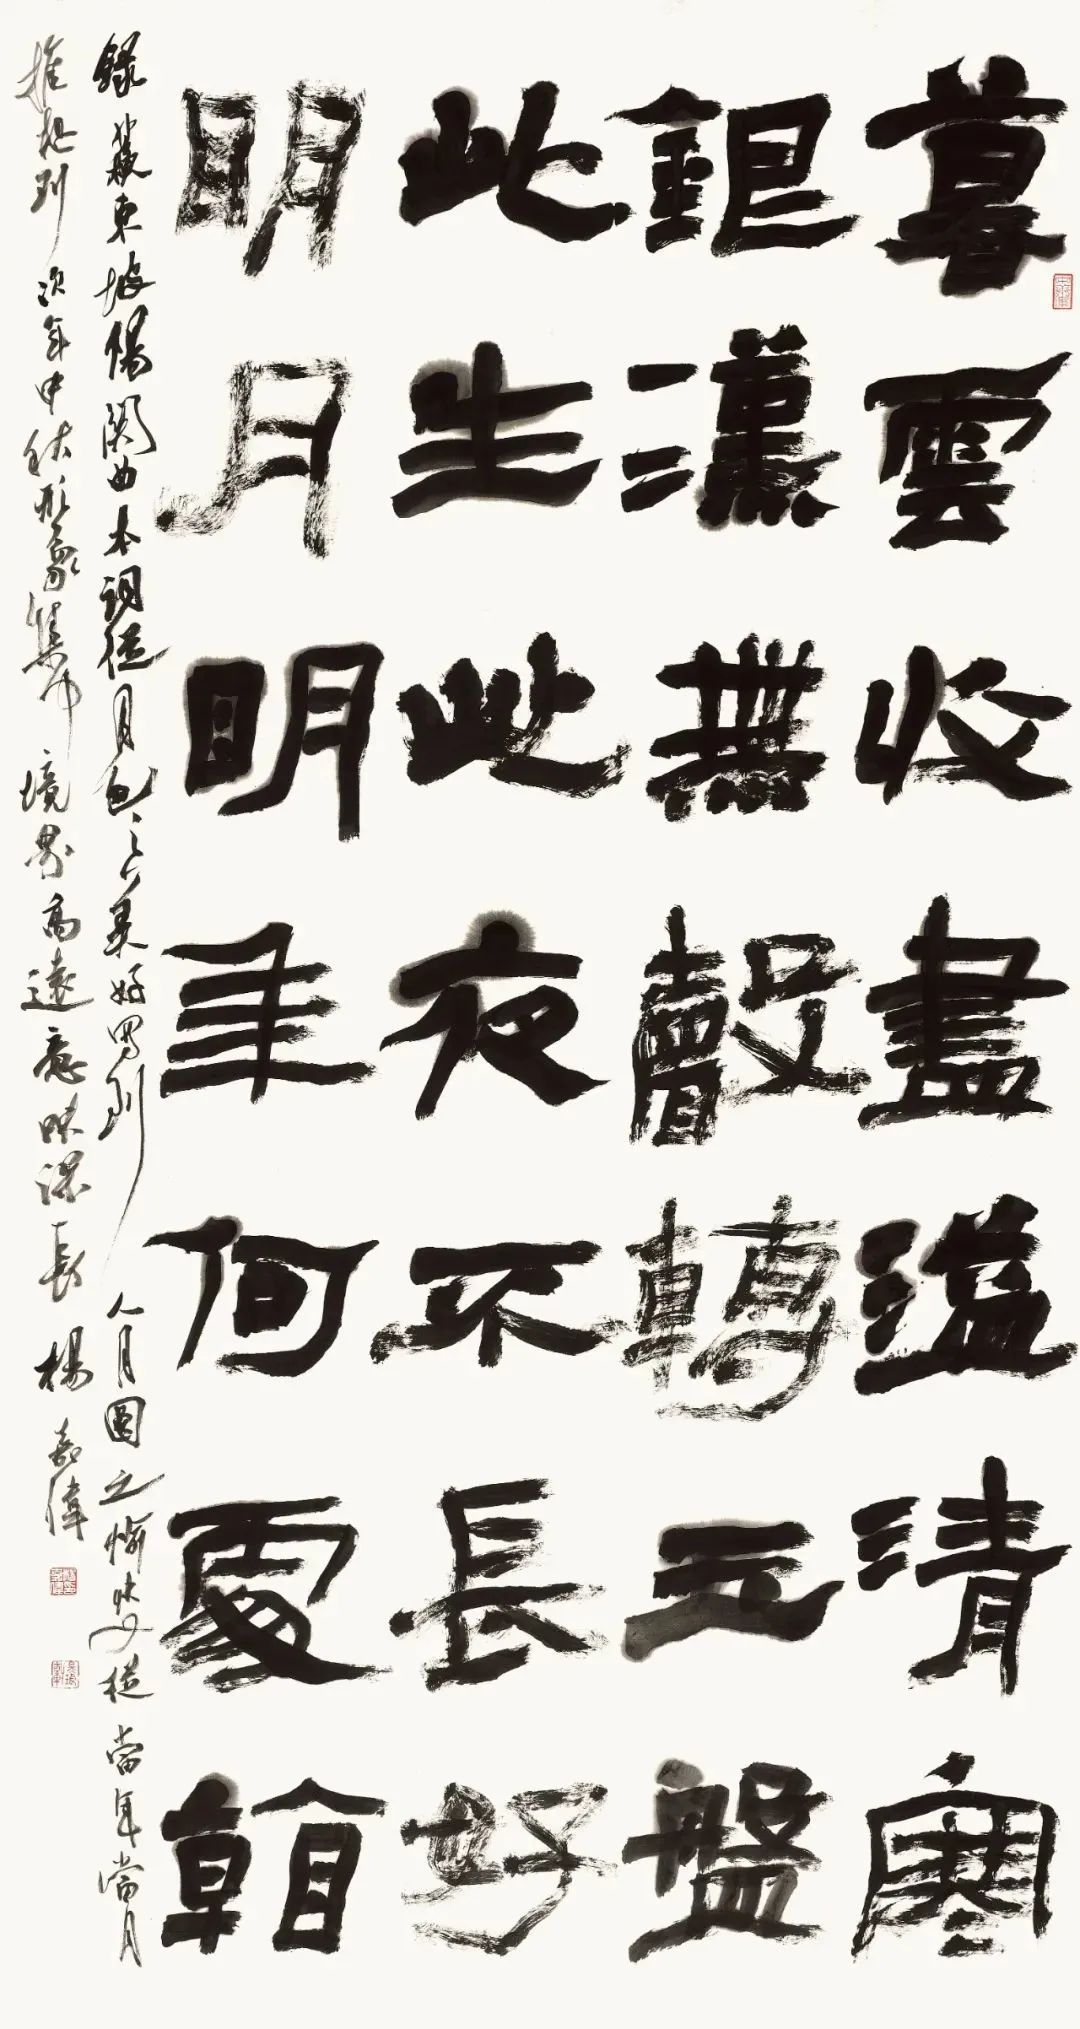 暮雲收盡溢清寒
銀漢無聲轉玉盤
此生此夜不長好
明月明年何處看
錄蘇東坡陽關曲本詞從月色之美好寫到人月圓之愉快又從當年當月
推想到次年中秋形象集中境界高遠意味深長楊嘉偉